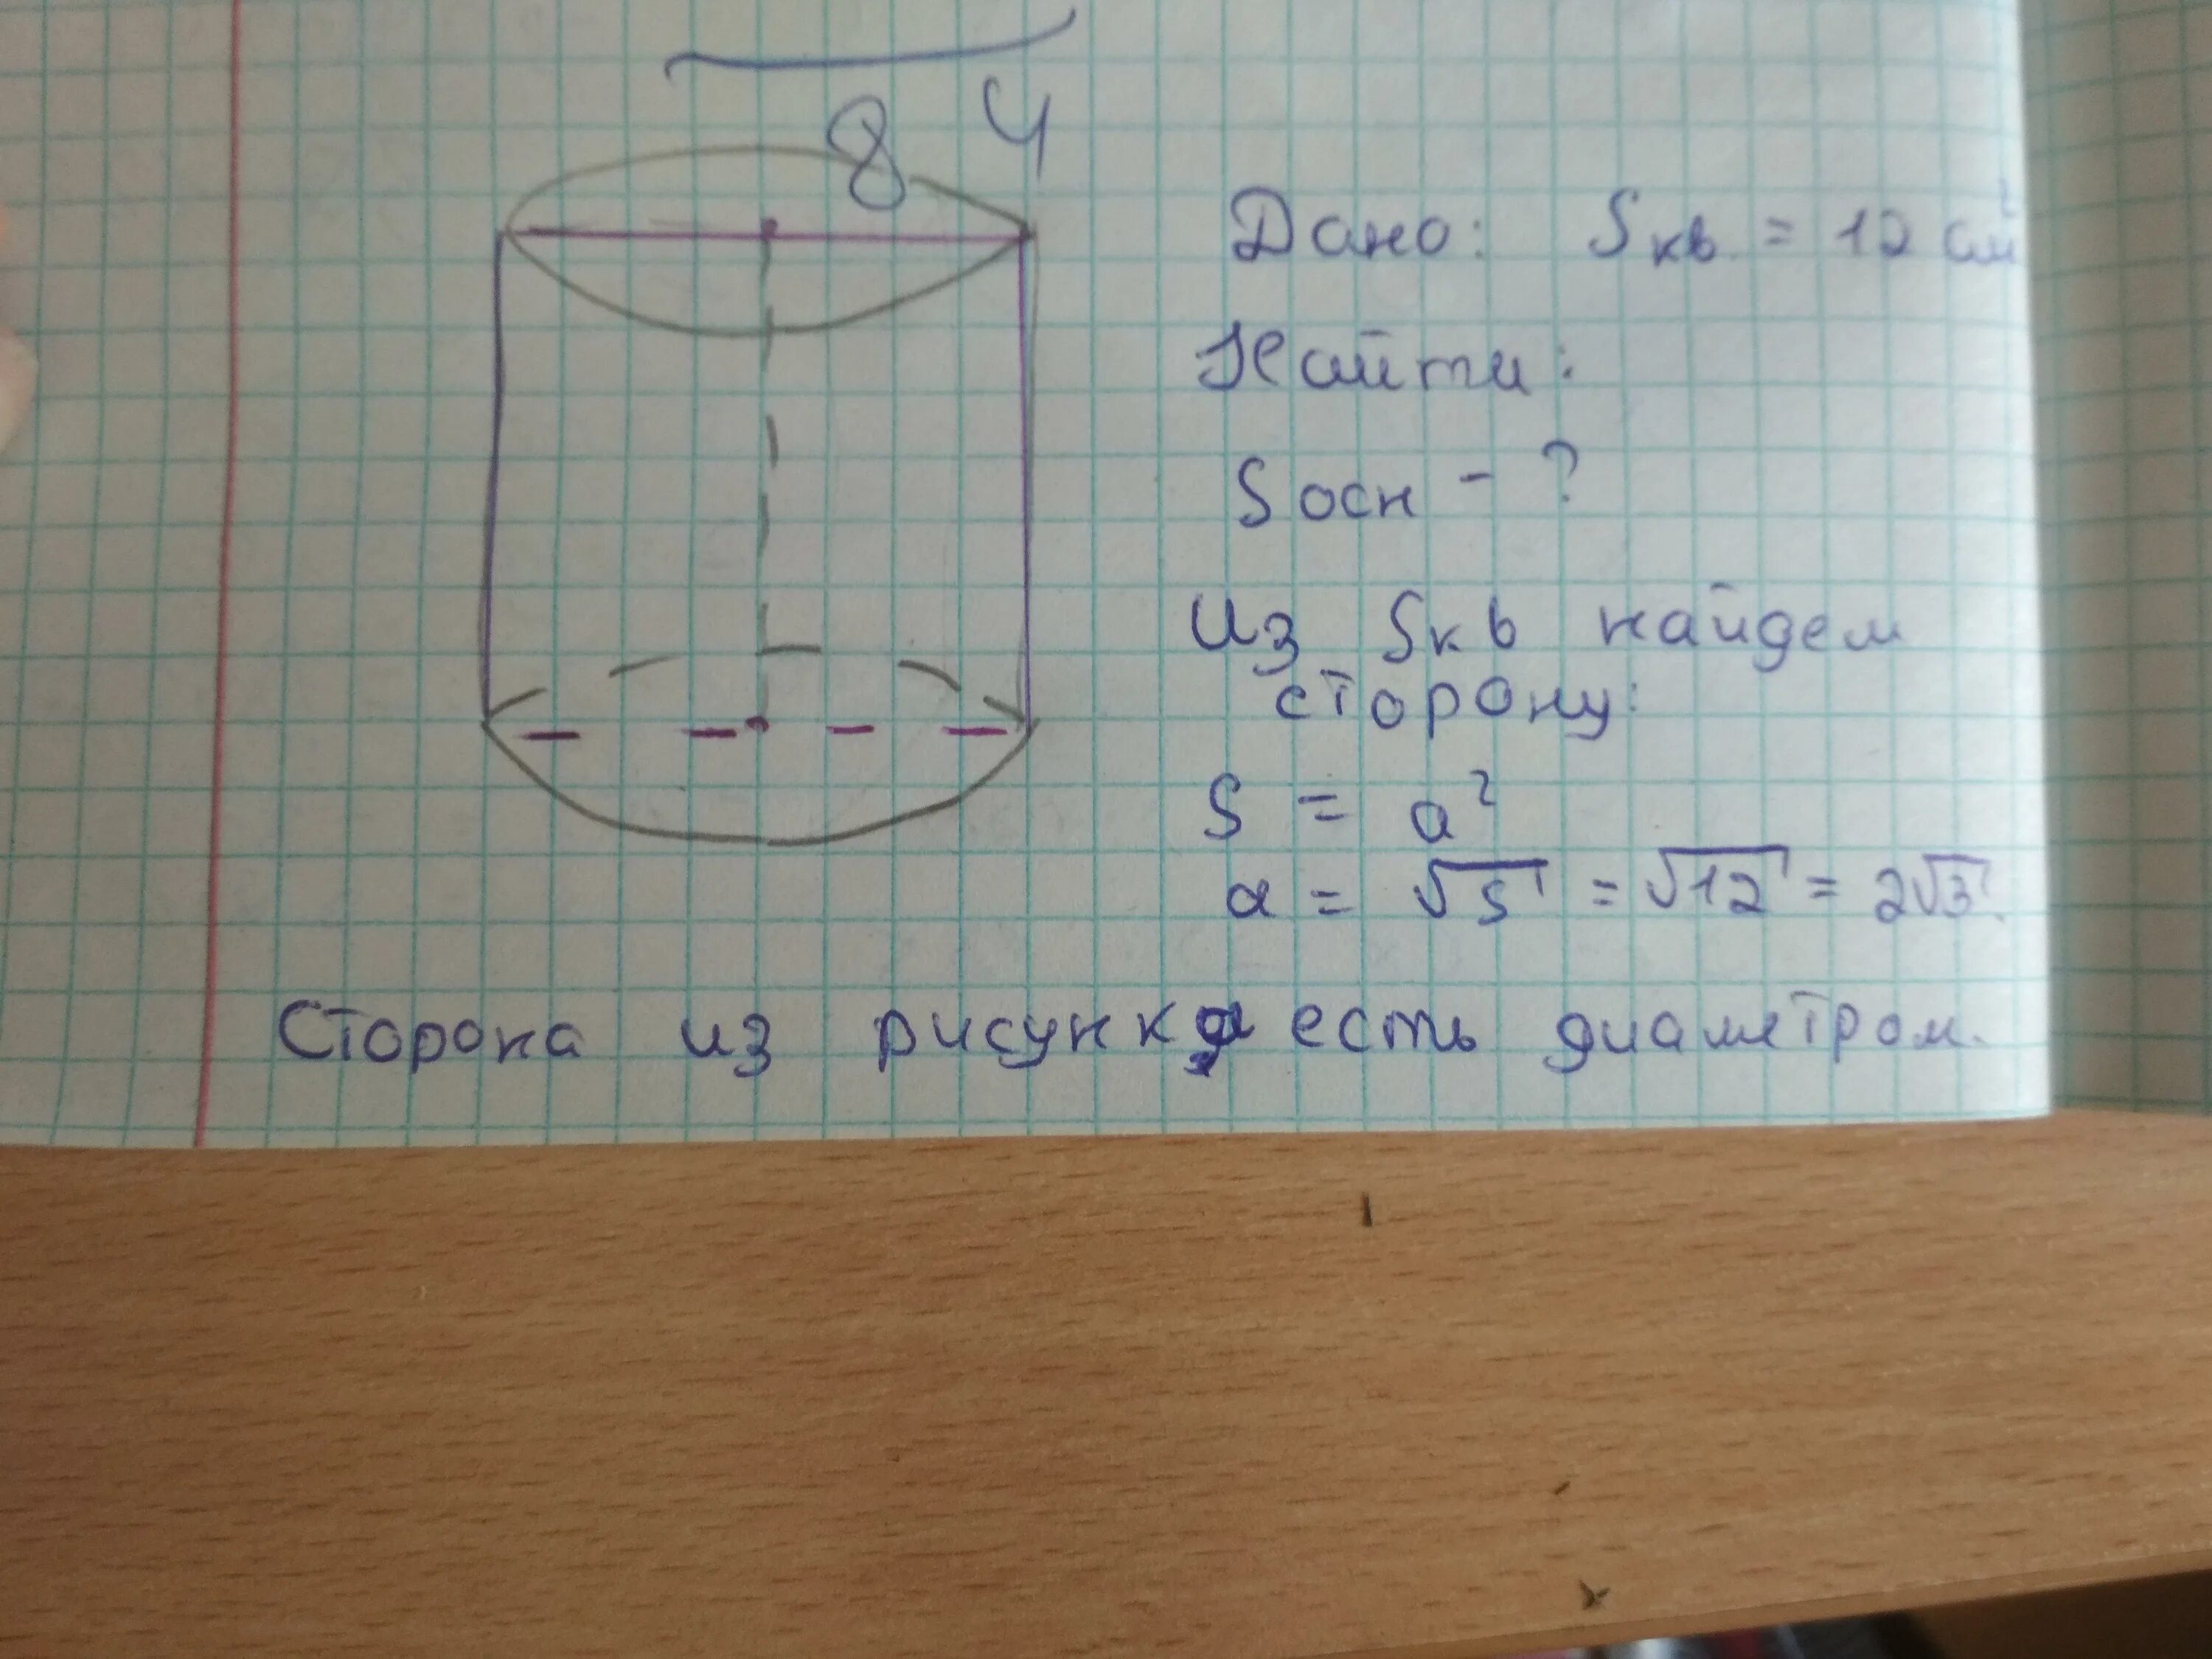 8 4
Дано: Sкв. = 12 см²
Найти:
Sосн - ?
Из Sкв найдем
сторону:
S = a²
a = √S = √12 = 2√3.
Сторона из рисунка есть диаметром.